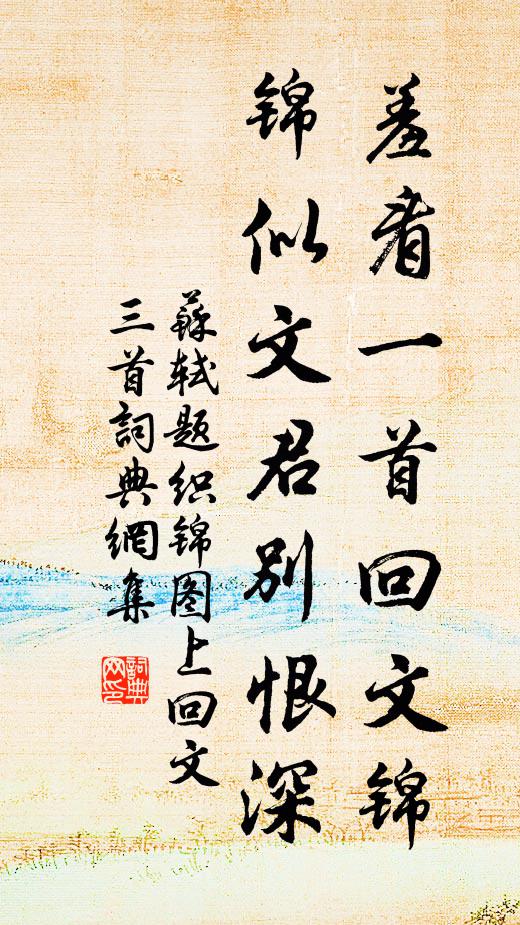 羞看一首回文锦
锦似文君别恨深
蘇轼题织锦图上回文
三首詞典網集
詞典
网印